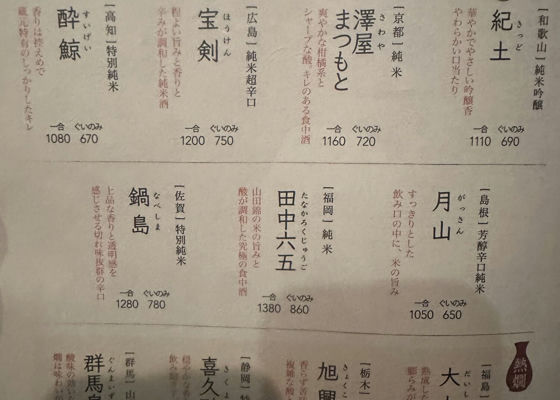 ［和歌山］純米吟醸
きっど
紀土
華やかでやさしい吟醸香
やわらかい口当たり
一合 ぐいのみ
1110 690
［京都］純米
さわや
澤屋
まつもと
爽やかな柑橘系と
シャープな酸、キレのある食中酒
一合 ぐいのみ
1160 720
［広島］純米超辛口
ほうけん
宝剣
程よい旨みと香りと
辛みが調和した純米酒
一合 ぐいのみ
1200 750
［高知］特別純米
すいげい
酔鯨
香りは控えめで
蔵元特有のしっかりしたキレ
一合 ぐいのみ
1080 670
［島根］芳醇辛口純米
がっさん
月山
すっきりとした
飲み口の中に、米の旨み
一合 ぐいのみ
1050 650
［福岡］純米
たなかろくじゅうご
田中六五
山田錦の米の旨みと
酸が調和した究極の食中酒
一合 ぐいのみ
1380 860
［佐賀］特別純米
なべしま
鍋島
上品な香りと透明感を
感じさせる切れ味抜群の辛口
一合 ぐいのみ
1280 780
熱燗
［福島］
大
熟成した
［栃木］
きょくこ
旭興
香らず苦
複雑な酸
［静岡］特
きくよ
喜久
穏やかな香
飲み飽
［群馬］山
ぐんまいず
群馬泉
酸味の効いた
燗は味わい